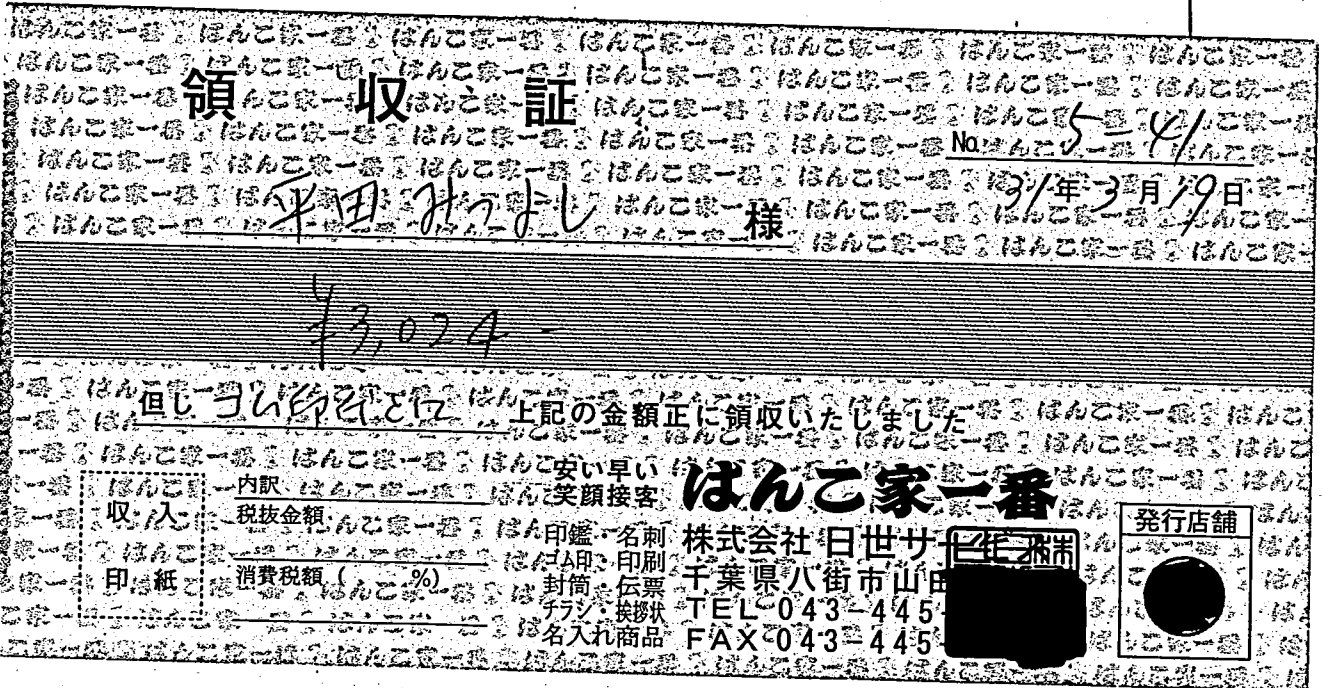 領収証
No. 5-41
31年3月19日
平田みつよし 様
¥3,024-
但し ゴム印代として 上記の金額正に領収いたしました
収入
印紙
内訳
税抜金額
消費税額 ( %)
安い早い
笑顔接客
印鑑・名刺
ゴム印・印刷
封筒・伝票
チラシ・挨拶状
名入れ商品
はんこ家一番
株式会社日世サービス
千葉県八街市山田
TEL 043-445
FAX 043-445
発行店舗